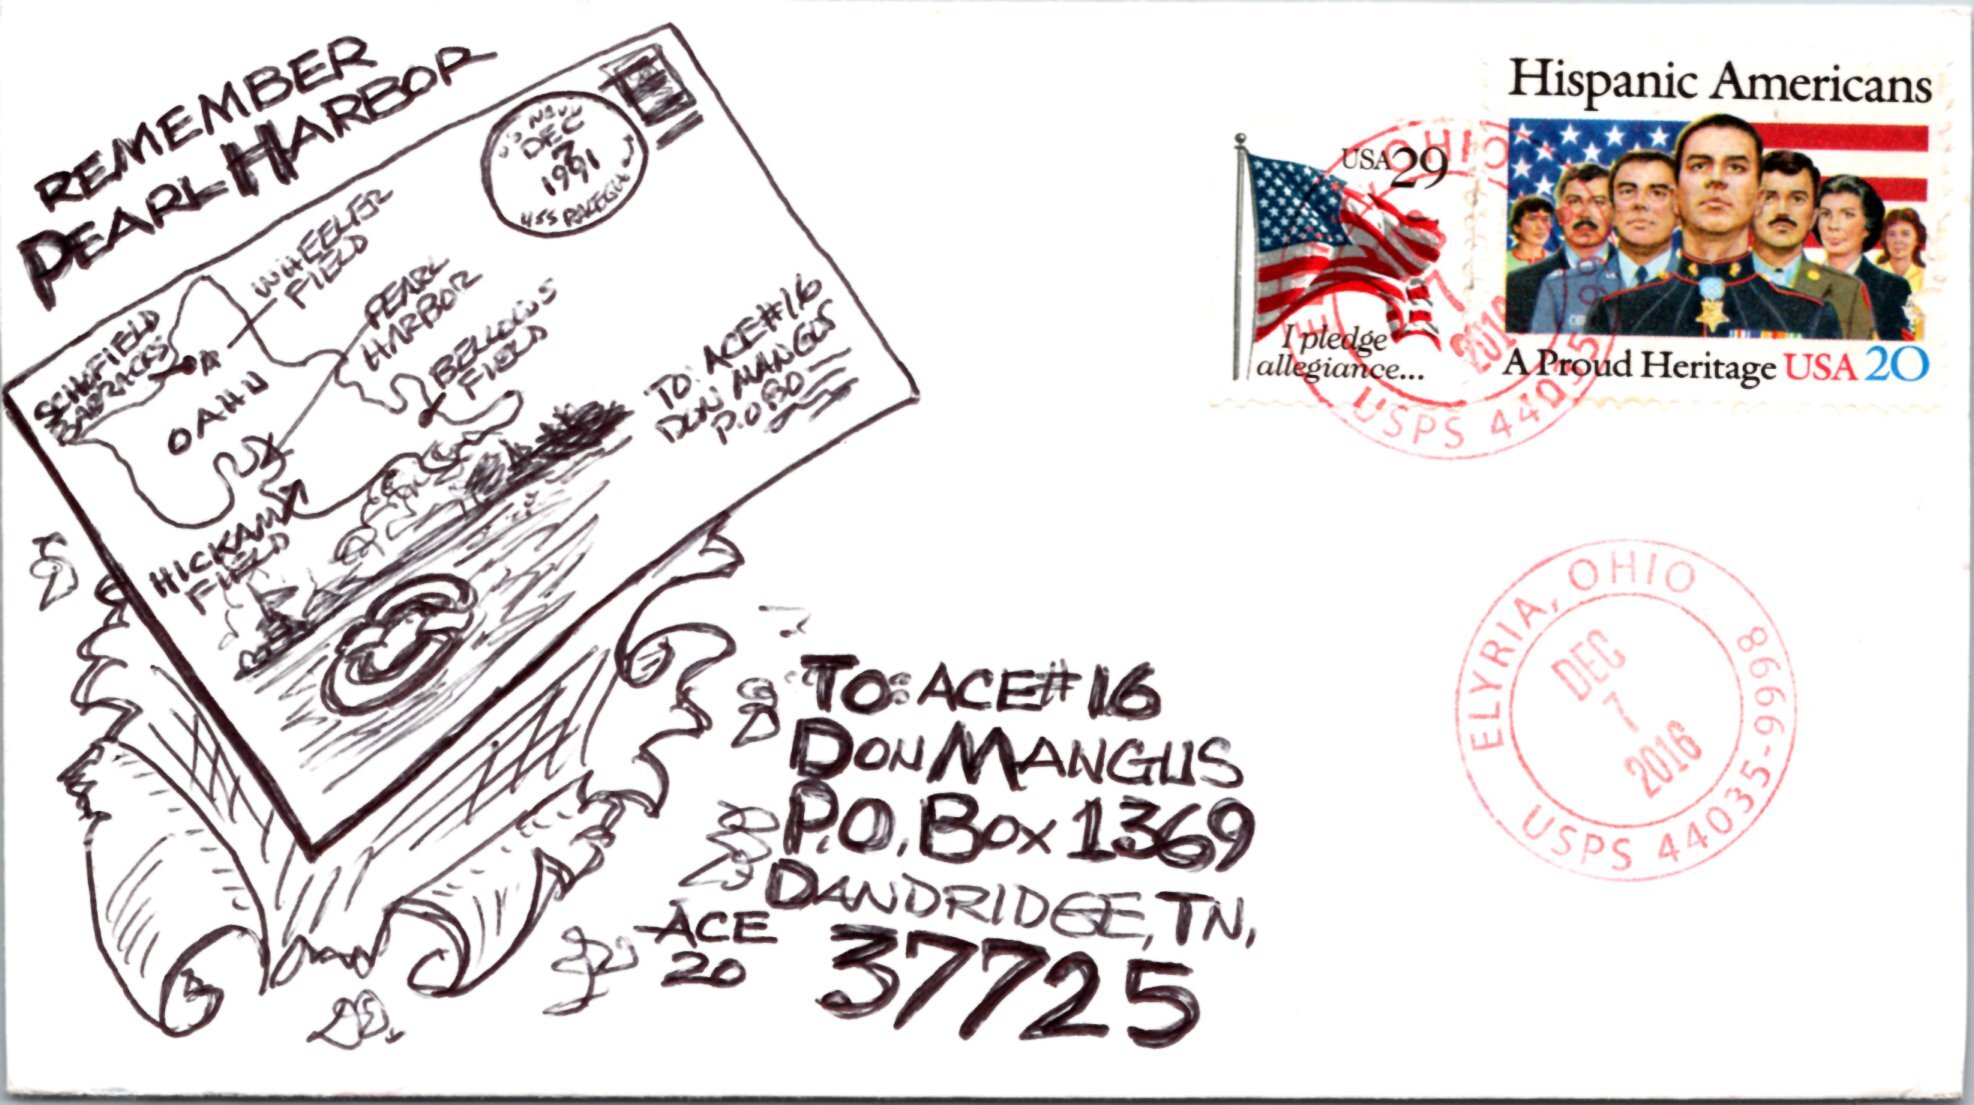 REMEMBER
PEARL HARBOR
DEC
7
1991
WHEELER
FIELD
PEARL
HARBOR
BELLOWS
FIELD
SCHOFIELD
BARRACKS
OAHU
HICKAM
FIELD
TO: ACE#16
DON MANGUS
P.O BO
USA 29
I pledge
allegiance...
Hispanic Americans
A Proud Heritage USA 20
OHIO
7
2016
USPS 44035
ELYRIA, OHIO
DEC
7
2016
USPS 44035-9998
TO: ACE#16
DON MANGUS
P.O. BOX 1369
DANDRIDGE, TN,
37725
ACE
20